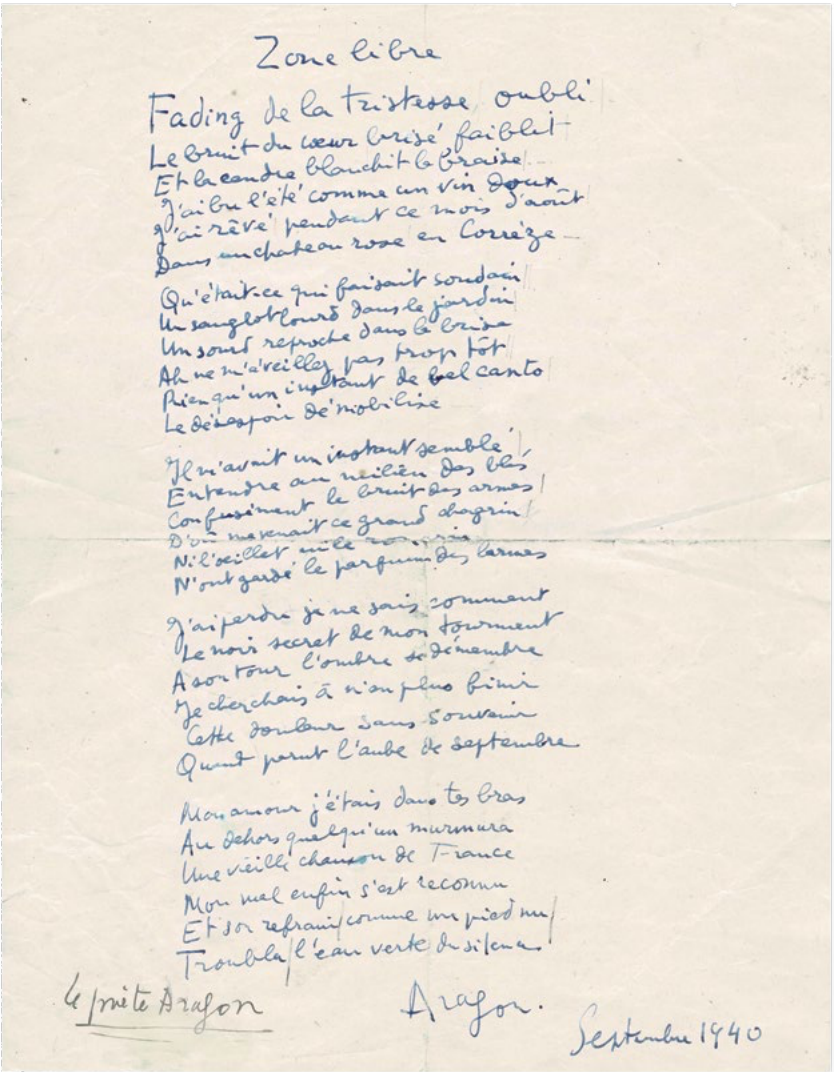 Zone libre
Fading de la tristesse oubli
Le bruit du cœur brisé faiblit
Et la cendre blanchit la braise
J'ai bu l'été comme un vin doux
J'ai rêvé pendant ce mois d'août
Dans un chateau rose en Corrèze
Qu'était-ce qui faisait soudain
Un sanglot lourd dans le jardin
Un sourd reproche dans la brise
Ah ne m'éveillez pas trop tôt
Rien qu'un instant de bel canto
Le désespoir démobilise
Il m'avait un instant semblé
Entendre au milieu des blés
Confusément le bruit des armes
D'où me venait ce grand chagrin
Ni l'œillet ni le
N'ont gardé le parfum des larmes
J'ai perdu je ne sais comment
Le noir secret de mon tourment
A son tour l'ombre se démembre
Je cherchais à n'en plus finir
Cette douleur sans souvenir
Quand parut l'aube de septembre
Mon amour j'étais dans tes bras
Au dehors quelqu'un murmura
Une vieille chanson de France
Mon mal enfin s'est reconnu
Et son refrain comme un pied nu
Troubla l'eau verte du silence
Le poète Aragon
Aragon.
Septembre 1940